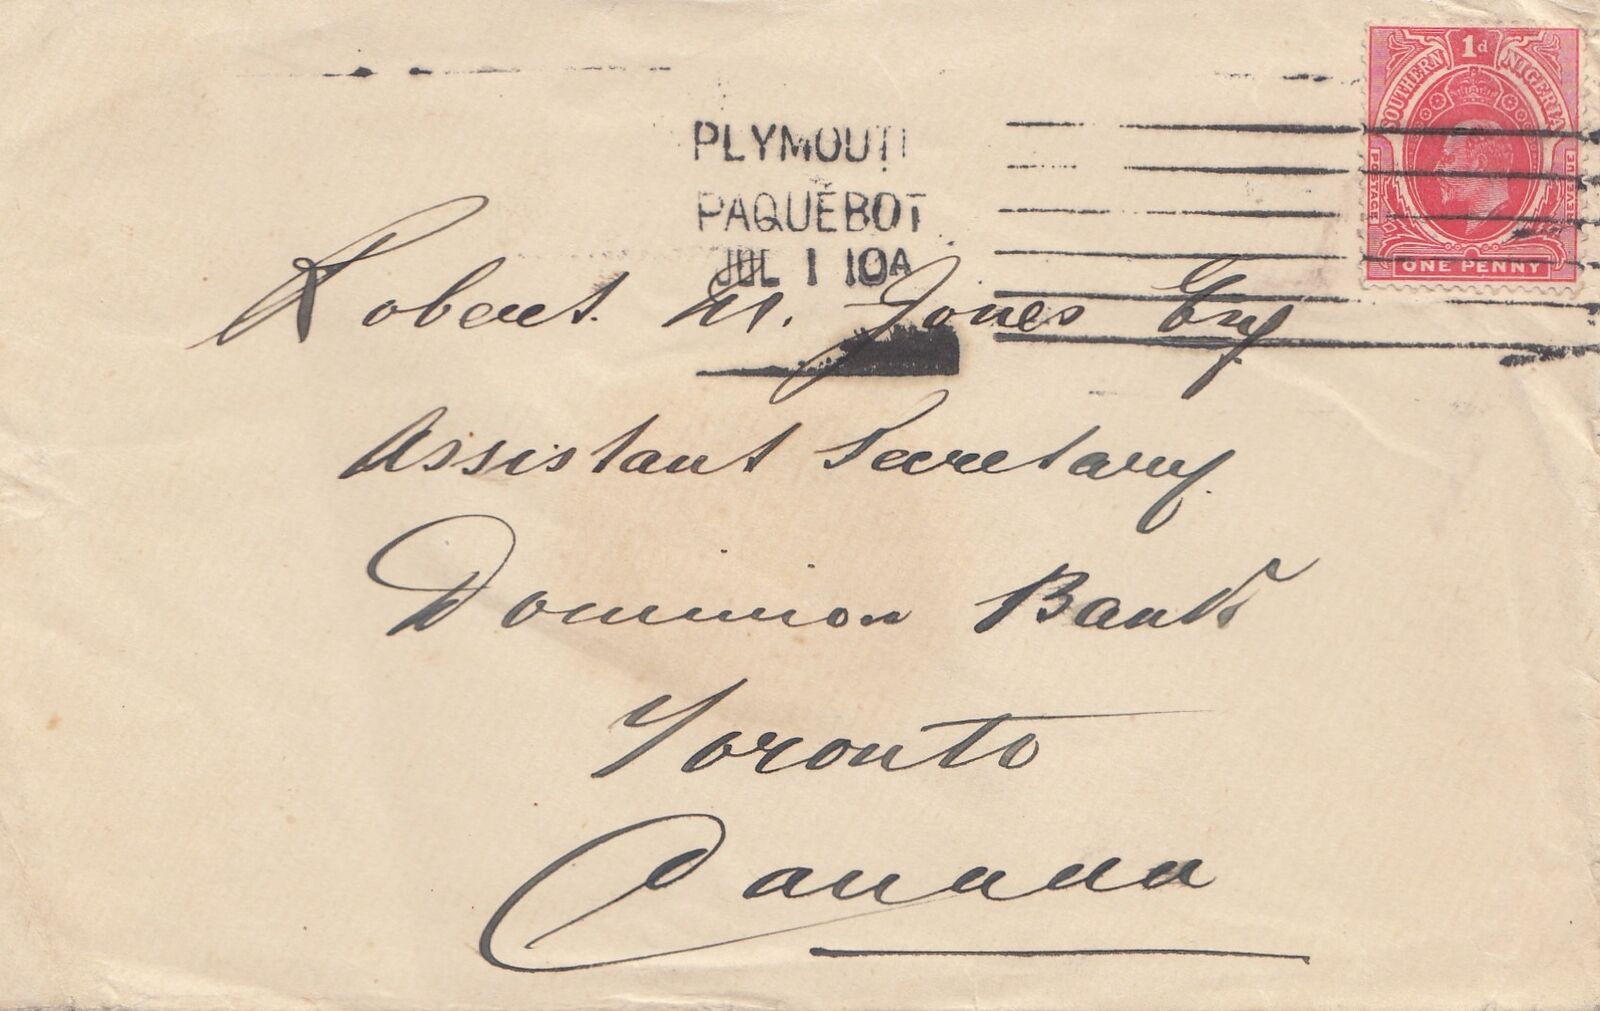 1d
SOUTHERN NIGERIA
POSTAGE
REVENUE
ONE PENNY
PLYMOUTH
PAQUEBOT
JUL 1 10A
Robert M. Jones Esq
Assistant Secretary
Dominion Bank
Toronto
Canada